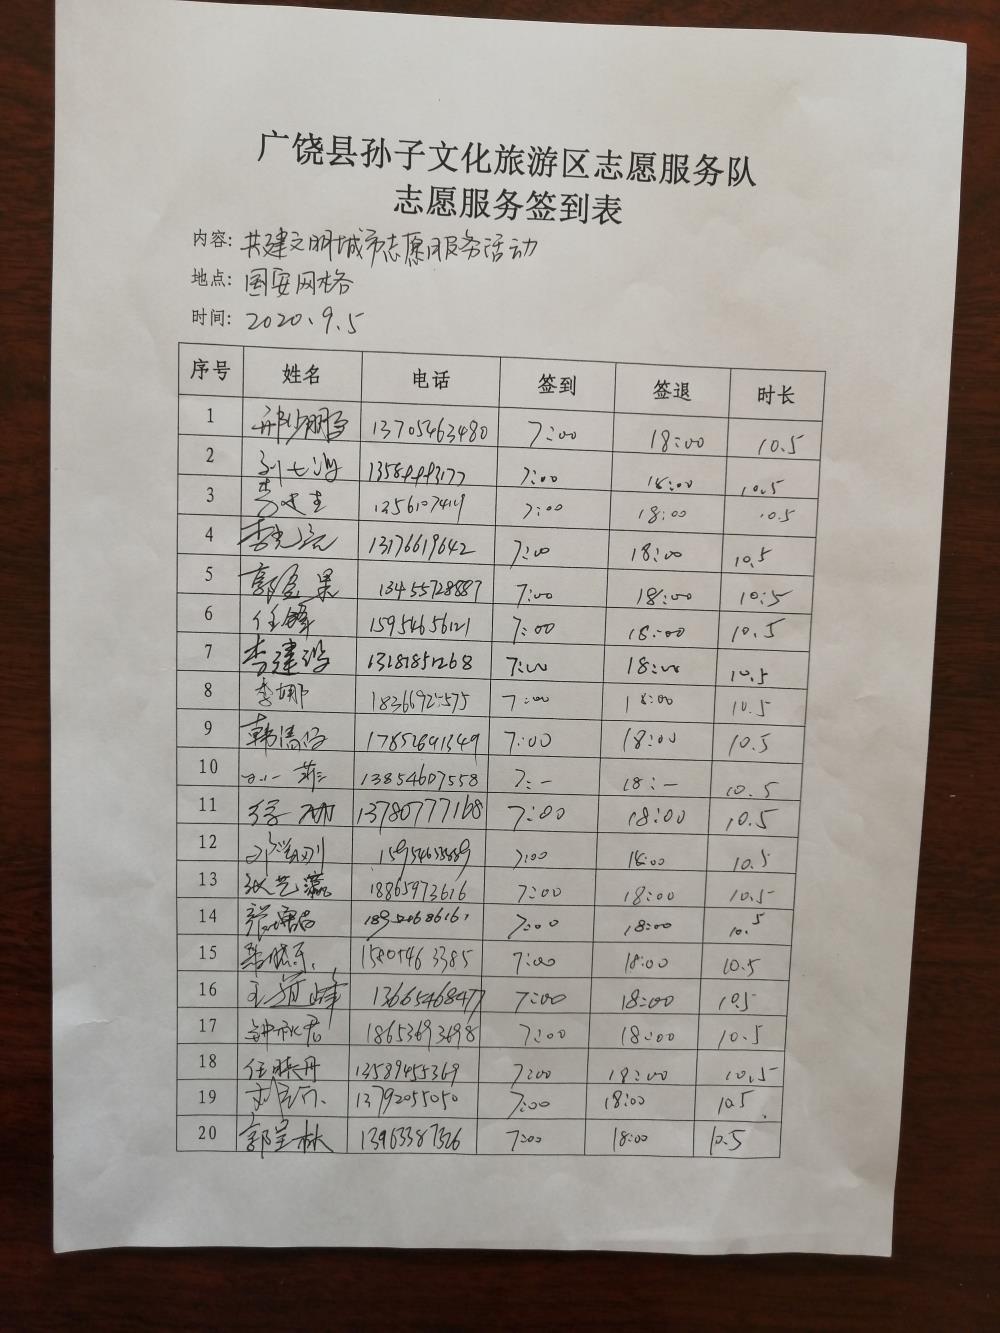 广饶县孙子文化旅游区志愿服务队
志愿服务签到表
内容: 共建文明城市志愿服务活动
地点: 国安网格
时间: 2020.9.5
序号 姓名 电话 签到 签退 时长
1 13705463480 7:00 18:00 10.5
2 7:00 18:00 10.5
3 7:00 18:00 10.5
4 13176619642 7:00 18:00 10.5
5 13455728887 7:00 18:00 10:5
6 任峰 15954656121 7:00 18:00 10.5
7 李建设 13181851268 7:00 18:00 10.5
8 李娜 7:00 18:00 10.5
9 7:00 18:00 10.5
10 13854607558 7:- 18:- 10.5
11 13780777168 7:00 18:00 10.5
12 7:00 18:00 10.5
13 张艺瀛 18865973616 7:00 18:00 10.5
14 7:00 18:00 10.5
15 7:00 18:00 10.5
16 13665468477 7:00 18:00 10.5
17 钟秋君 18653693698 7:00 18:00 10.5
18 任晓丹 13589455369 7:00 18:00 10.5
19 13792055050 7:00 18:00 10.5
20 郭宝林 13963387326 7:00 18:00 10.5